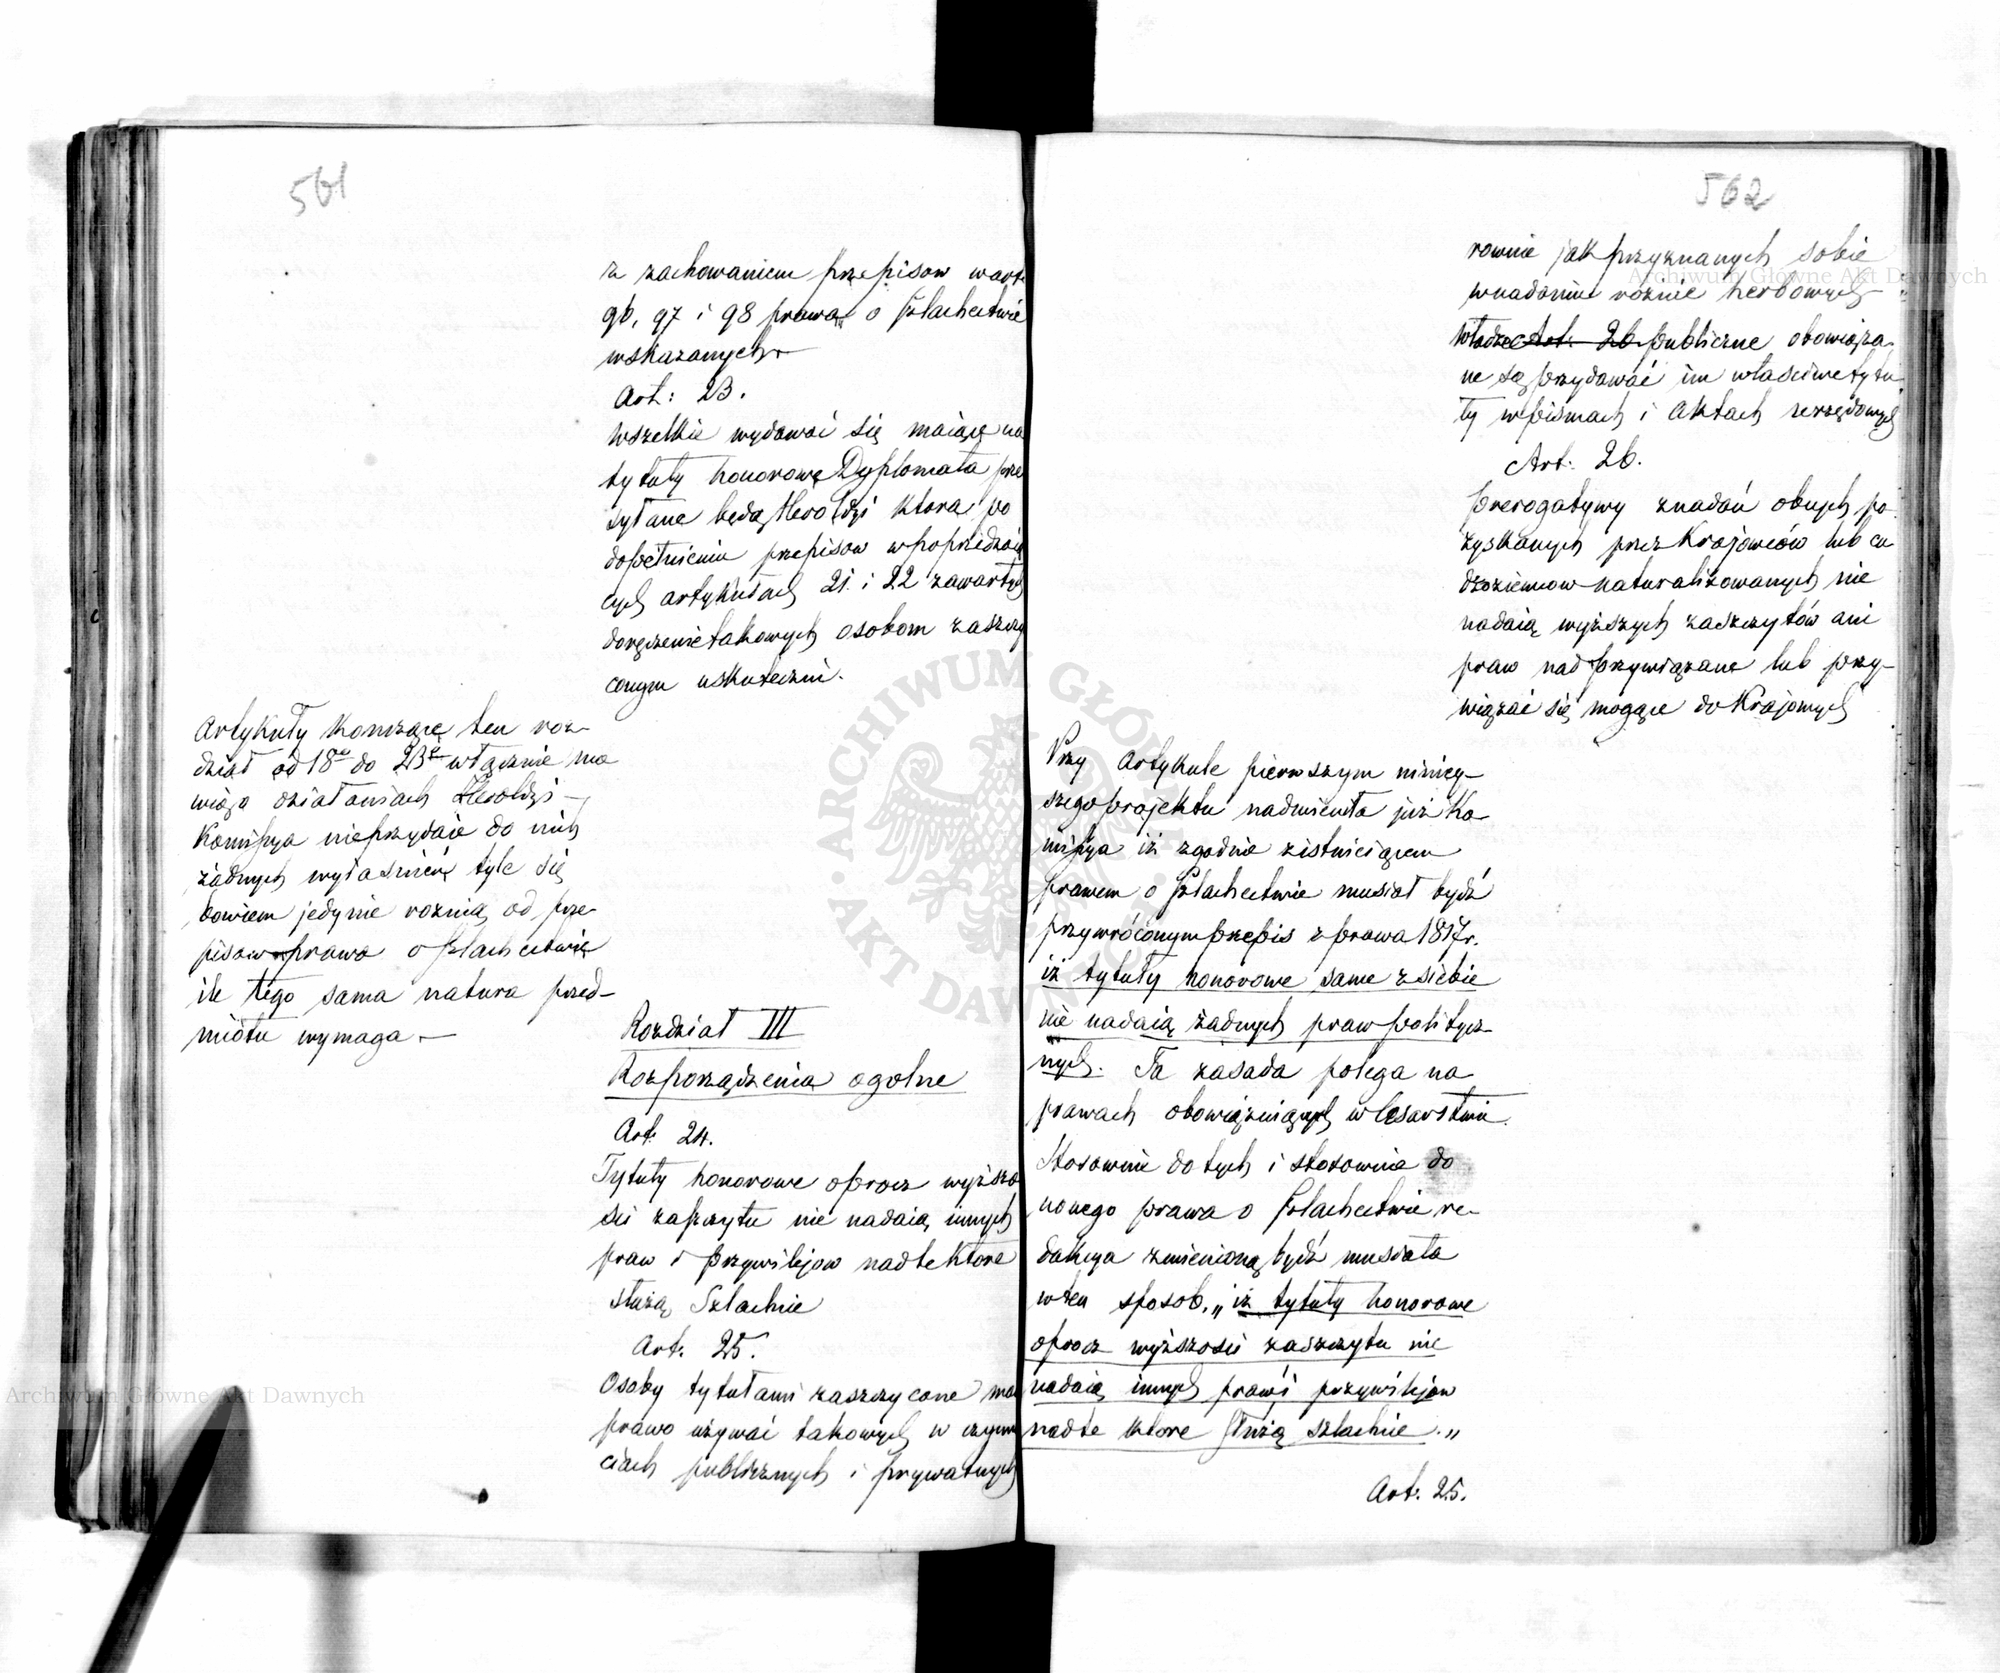 561
z zachowaniem przepisow w art.
96, 97 i 98 prawa o Szlachectwie
wskazanych.
Art: 23.
Wszelkie wydawać się maiące na
tytuły honorowe Dyplomata prze
syłane będą Heroldyi która po
dopełnieniu przepisow w poprzedzaią
cych artykułach 21. i 22 zawartych
doręczenie takowych osobom zaszczy
conym uskuteczni.
Artykuły kończące ten roz-
dział od 18go do 23go włącznie mo
wią o działaniach Heroldyi -
Kommissya nieprzydaie do nich
żadnych wyiaśnień tyle się
bowiem jedynie roznią od prze
pisow prawa o szlachectwie
ile tego sama natura przed-
miotu wymaga. -
Rozdział III
Rozporządzenia ogolne
Art. 24.
Tytuły honorowe oprocz wyższo
ści zaszczytu nie nadaią innych
praw i przywilejow nad te które
służą Szlachcie
Art. 25.
Osoby tytułami zaszczycone maią
prawo używać takowych w czynno
ciach publicznych i prywatnych
562
rownie jak przyznanych sobie
w nadaniu roznic herbowych -
Władze Art. 26 publiczne obowiąza
ne są przydawać im właściwe tytu
ły w pismach i Aktach urzędowych
Art. 26.
Prerogatywy z nadań obcych po
zyskanych przez Krajowców lub cu
dzoziemcow naturalizowanych nie
nadaią wyższych zaszczytów ani
praw nad przywiązane lub przy-
wiązać się mogące do Krajowych
Przy Artykule pierwszym niniey-
szego projektu nadmieniła już Ko-
missya iż zgodnie z istnieiącem
prawem o szlachectwie musiał bydź
przywróconym przepis z prawa 1817 r.
iż tytuły honorowe same z siebie
nie nadaią żadnych praw politycz-
nych. Ta zasada polega na
prawach obowiązuiących w Cesarstwie.
Stosownie do tych i stosownie do
nowego prawa o szlachectwie re-
dakcya zmienioną bydź musiała
w ten sposob, „iż tytuły honorowe
oprocz wyższości zaszczytu nie
nadaią innych praw i przywilejow
nad te które służą szlachcie."
Art. 25.
Archiwum Główne Akt Dawnych
Archiwum Główne Akt Dawnych
ARCHIWUM GŁÓWNE AKT DAWNYCH